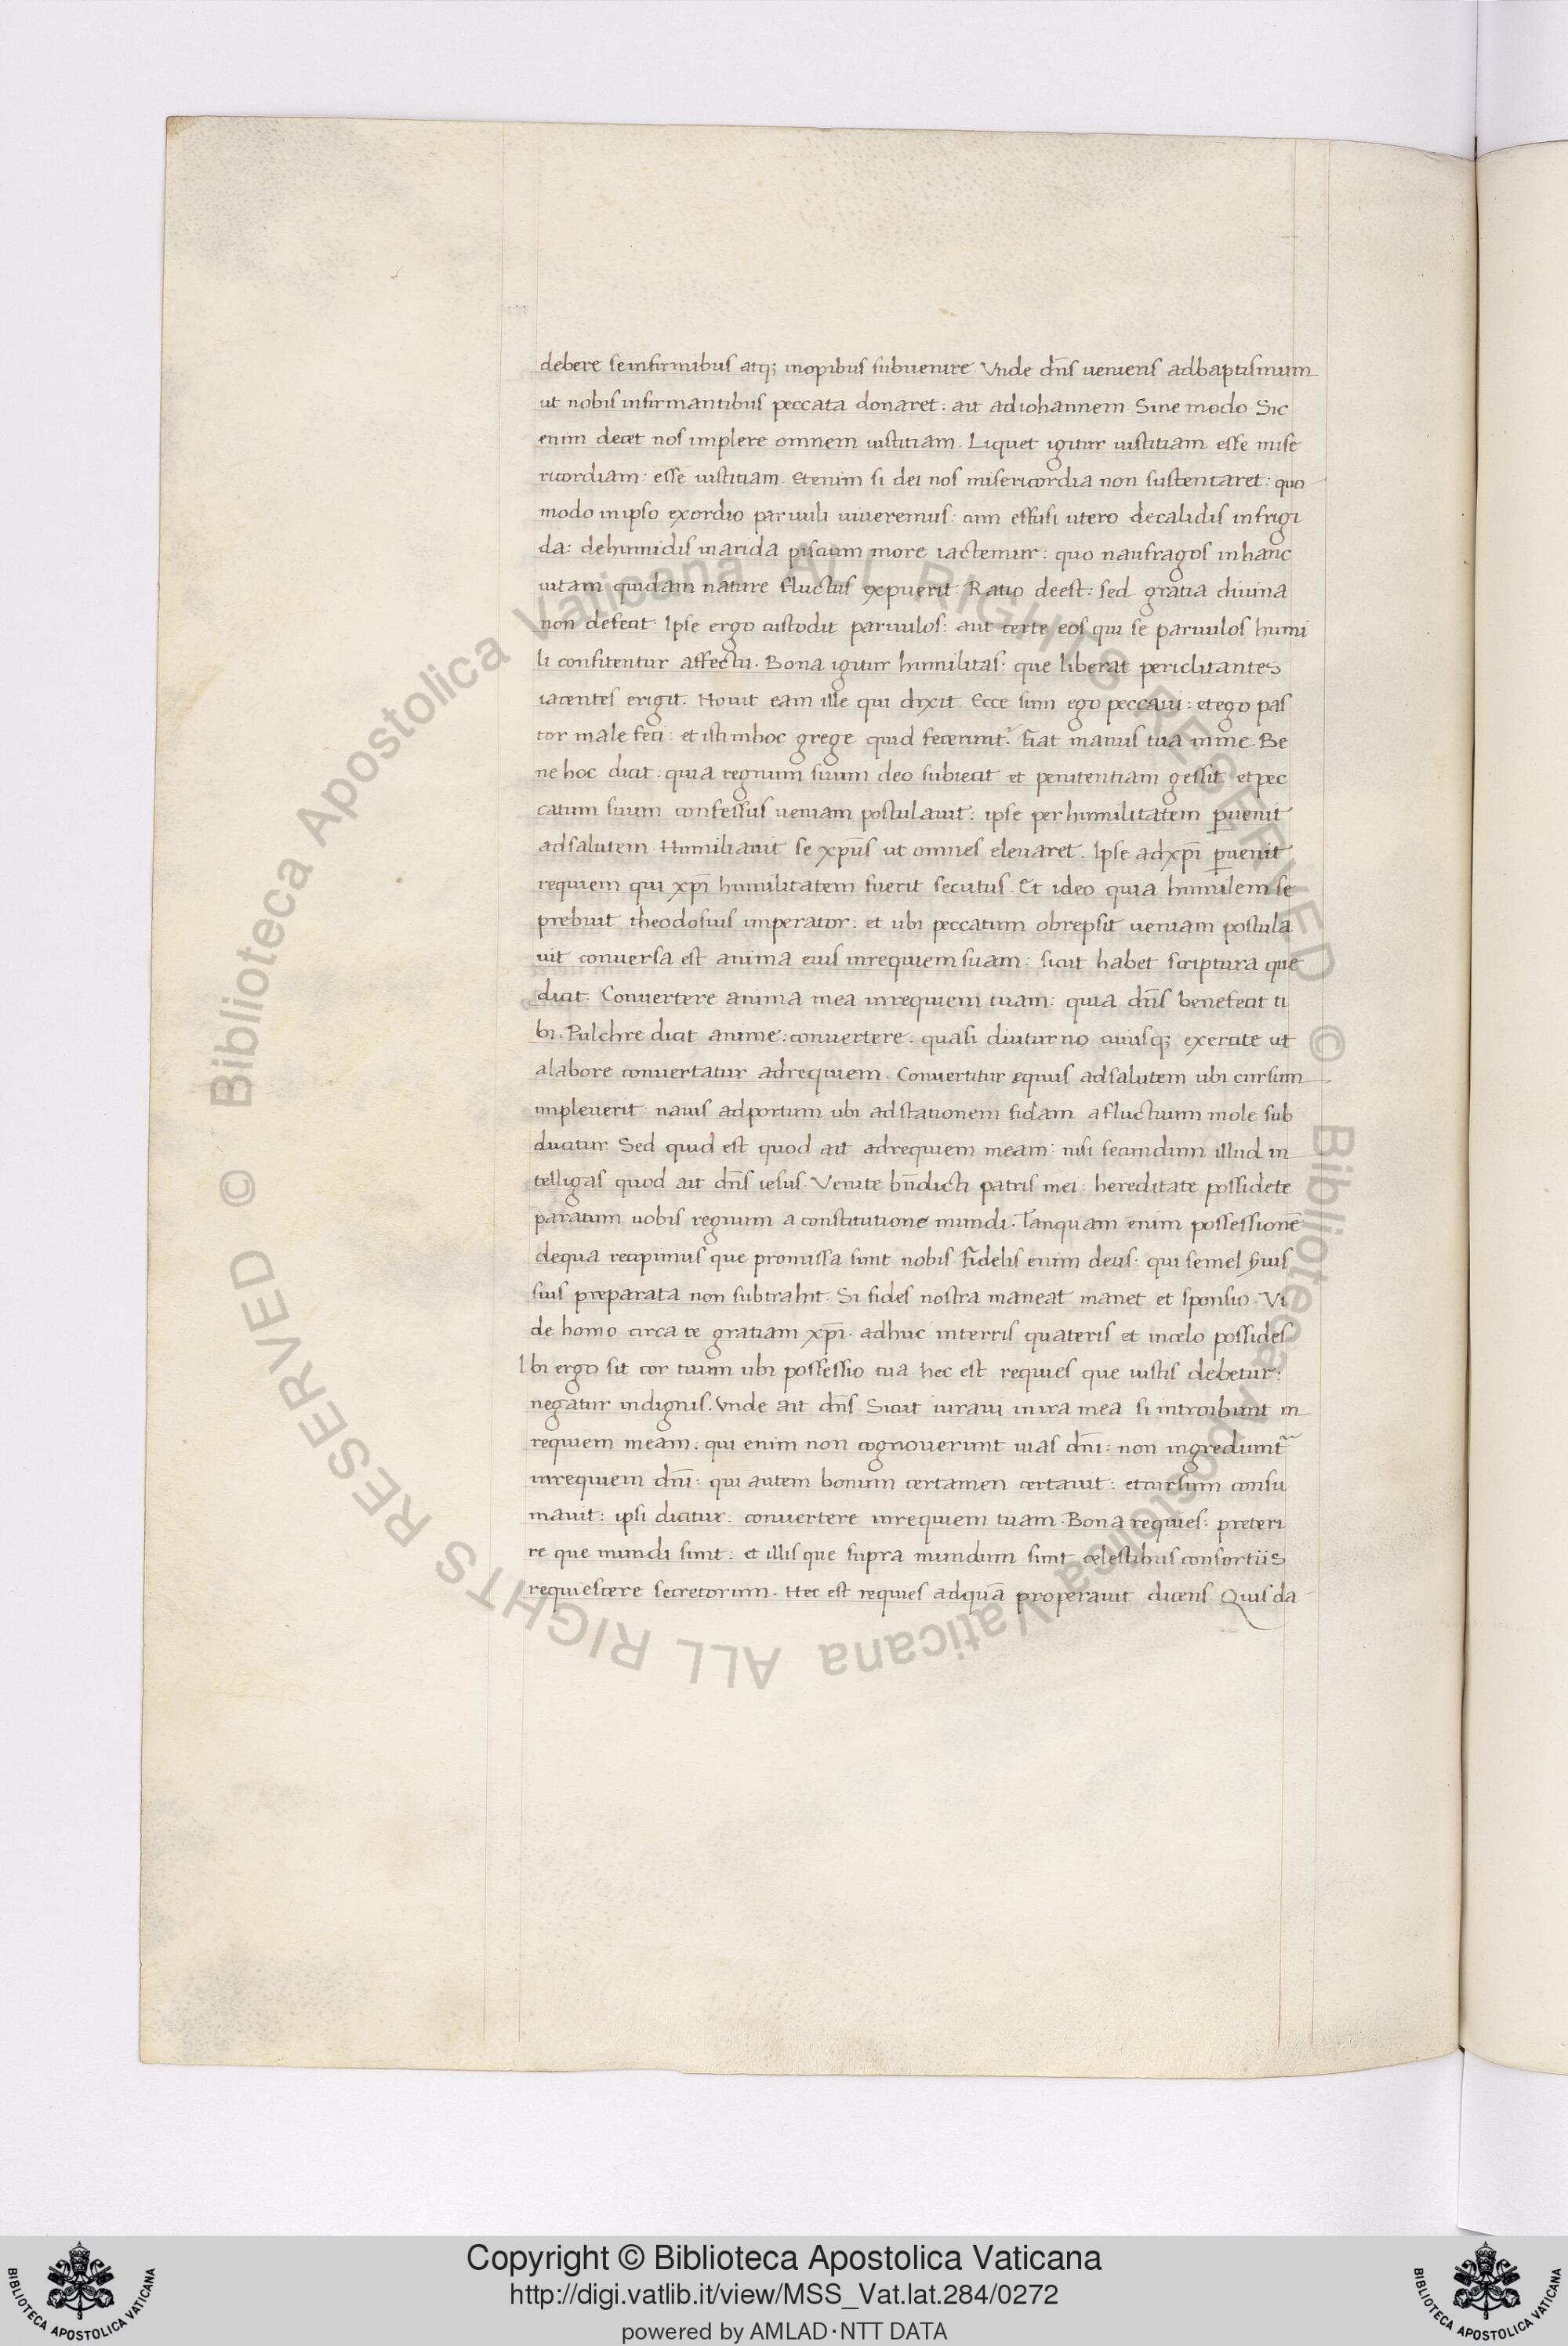 debere se infirmibus atq; inopibus subuenire Vnde dn̄s ueniens ad baptismum
ut nobis infirmantibus peccata donaret: ait ad iohannem. Sine modo Sic
enim decet nos implere omnem iustitiam. Liquet igitur iustitiam esse mise
ricordiam: esse iustitiam. Etenim si dei nos misericordia non sustentaret: quo
modo in ipso exordio paruuli uiueremus: cum effusi utero de calidis in frigi
da: de humidis in arida piscium more iactemur: quo naufragos in hanc
uitam quidam nature fluctus expuerit. Ratio deest: sed gratia diuina
non defecit. Ipse ergo custodit paruulos: aut certe eos qui se paruulos humi
li confitentur affectu. Bona igitur humilitas: que liberat periclitantes
iacentes erigit. Nouit eam ille qui dixit. Ecce sum ego peccaui: et ego pas
tor male feci: et isti in hoc grege quid fecerunt? Fiat manus tua in me. Be
ne hoc dicit: quia regnum suum deo subiecit et penitentiam gessit et pec
catum suum confessus ueniam postulauit: ipse per humilitatem ꝑuenit
ad salutem. Humiliauit se xp̄us ut omnes eleuaret. Ipse ad xp̄i ꝑuenit
requiem qui xp̄i humilitatem fuerit secutus. Et ideo quia humilem se
prebuit theodosius imperator: et ubi peccatum obrepsit ueniam postula
uit conuersa est anima eius in requiem suam: sicut habet scriptura que
dicit. Conuertere anima mea in requiem tuam: quia dn̄s benefecit ti
bi. Pulchre dicit anime: conuertere: quasi diuturno cuiusq; exercite ut
a labore conuertatur ad requiem. Conuertitur equus ad salutem ubi cursum
impleuerit: nauis ad portum ubi ad stationem fidam a fluctuum mole sub
ducitur. Sed quid est quod ait ad requiem meam: nisi secundum illud in
telligas quod ait dn̄s iesus. Venite bn̄dicti patris mei: hereditate possidete
paratum uobis regnum a constitutione mundi. Tanquam enim possessionē
de qua recipimus que promissa sunt nobis. Fidelis enim deus: qui semel seruis
suis preparata non subtrahit. Si fides nostra maneat manet et sponsio. Vi
de homo circa te gratiam xp̄i. adhuc in terris quateris et in celo possides
Ibi ergo sit cor tuum ubi possessio tua hec est requies que iustis debetur:
negatur indignis. Vnde ait dn̄s Sicut iuraui in ira mea si introibunt in
requiem meam: qui enim non cognouerunt uias dn̄i: non ingrediunt̃
in requiem dn̄i: qui autem bonum certamen certauit: et cursum consu
mauit: ipsi dicitur: conuertere in requiem tuam. Bona requies: preteri
re que mundi sunt: et illis que supra mundum sunt celestibus consortiis
requiescere secretorum. Hec est requies ad quā properauit dicens Quis da
Copyright © Biblioteca Apostolica Vaticana
http://digi.vatlib.it/view/MSS_Vat.lat.284/0272
powered by AMLAD·NTT DATA